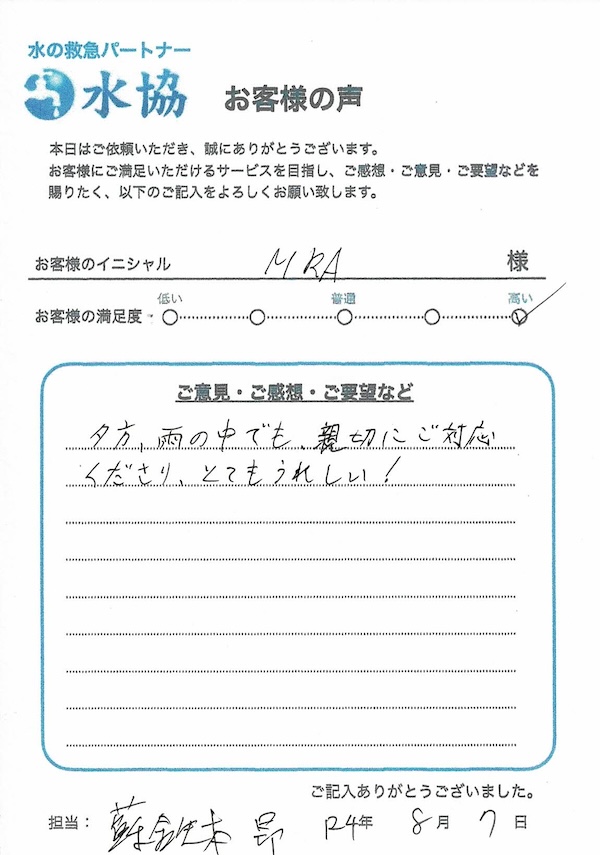 水の救急パートナー
水協 お客様の声
本日はご依頼いただき、誠にありがとうございます。
お客様にご満足いただけるサービスを目指し、ご感想・ご意見・ご要望などを
賜りたく、以下のご記入をよろしくお願い致します。
お客様のイニシャル MKA 様
低い 普通 高い
お客様の満足度
ご意見・ご感想・ご要望など
夕方、雨の中でも、親切にご対応
くださり、とてもうれしい!
ご記入ありがとうございました。
担当: 昴 R4年 8月 7日